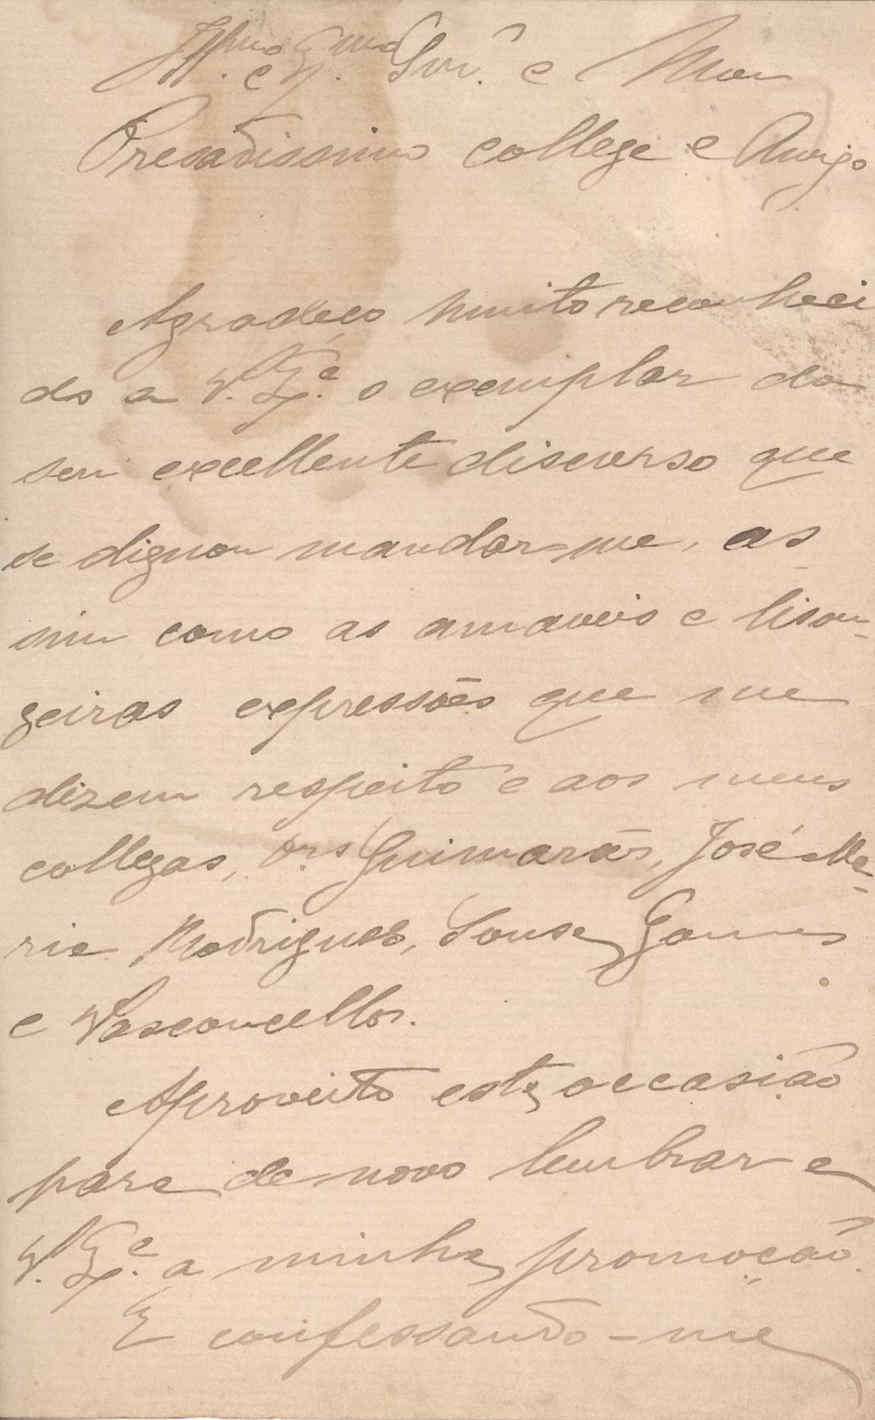 Illmo e Exmo Snr. e Meu
Presadissimo collega e Amigo
Agradeço muito reconheci
do a V. Exª o exemplar do
seu excellente discurso que
se dignou mandar-me, as
sim como as amaveis e lison-
geiras expressões que me
dizem respeito e aos meus
collegas, Drs Guimarães, José Ma-
ria Rodrigues, Sousa Gomes
e Vasconcellos.
Aproveito esta occasião
para de novo lembrar a
V. Exª a minha promoção.
E confessando-me